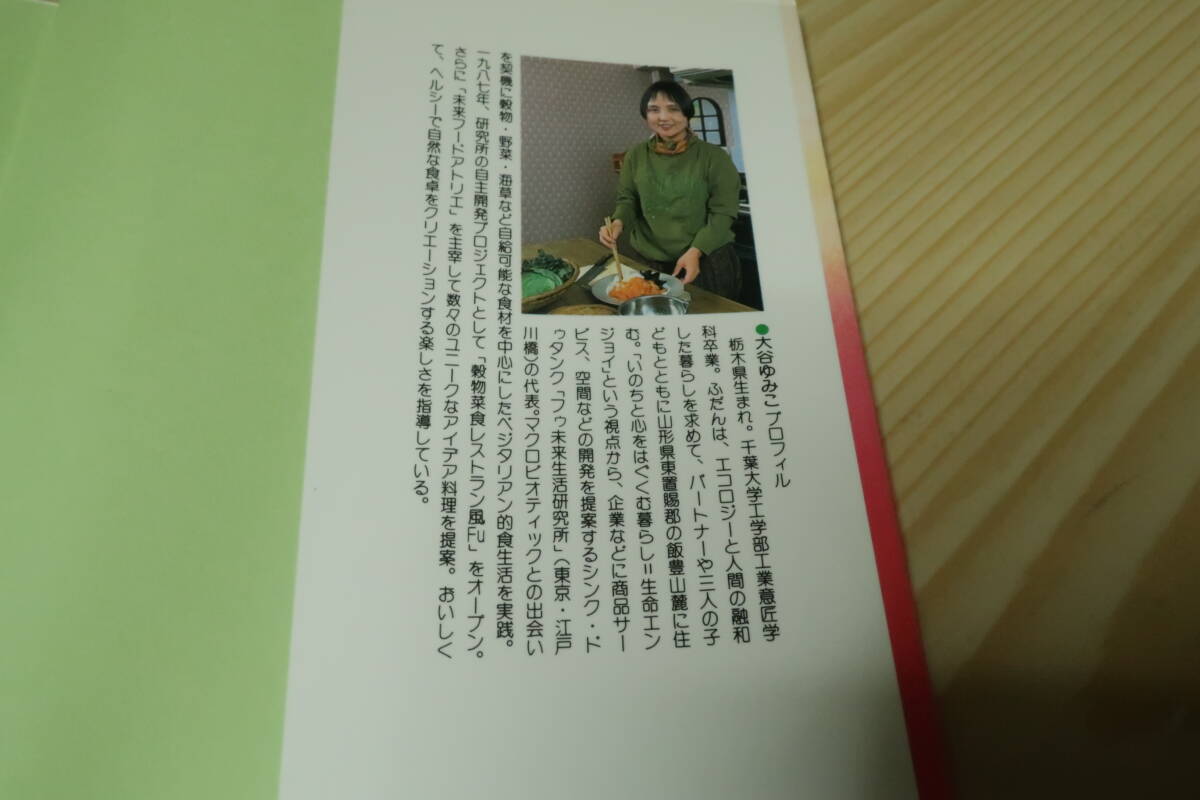 ●大谷ゆみこプロフィル
栃木県生まれ。千葉大学工学部工業意匠学
科卒業。ふだんは、エコロジーと人間の融和
した暮らしを求めて、パートナーや三人の子
どもとともに山形県東置賜郡の飯豊山麓に住
む。「いのちと心をはぐくむ暮らし=生命エン
ジョイ」という視点から、企業などに商品サー
ビス、空間などの開発を提案するシンク・ド
ゥタンク「フゥ未来生活研究所」(東京・江戸
川橋)の代表。マクロビオティックとの出会い
を契機に穀物・野菜・海草など自給可能な食材を中心にしたベジタリアン的食生活を実践。
一九八七年、研究所の自主開発プロジェクトとして「穀物菜食レストラン風Fu」をオープン。
さらに「未来フードアトリエ」を主宰して数々のユニークなアイデア料理を提案。おいしく
て、ヘルシーで自然な食卓をクリエーションする楽しさを指導している。